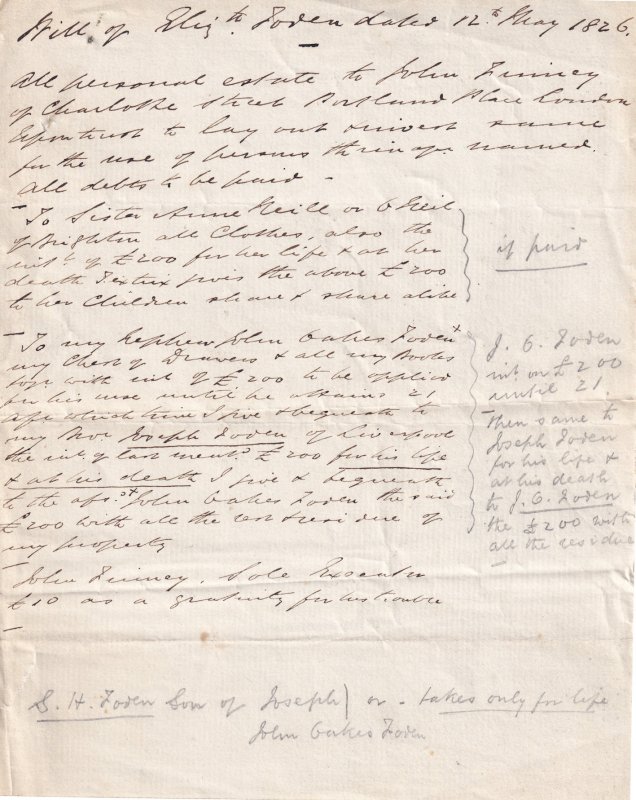 Will of Eliz.th Foden dated 12.th May 1826.
All personal estate to John Finney
of Charlotte Street Portland Place London
Upon trust to lay out & invest same
for the use of persons therein aft named.
All debts to be paid -
To Sister Anne Neill or O'Neil
of Brighton all Clothes, also the
int.t of £200 for her life & at her
death Textrix gives the above £200
to her Children share & share alike
if paid
To my Nephew John Oakes Foden
my Chest of Drawers & all my Books
with int. of £200 to be applied
for his use until he attains 21
after which time I give & bequeath to
my Bro.r Joseph Foden of Liverpool
the int. of last ment.d £200 for his life
& at his death I give & bequeath
to the afs.d John Oakes Foden the said
£200 with all the rest & residue of
my property
J. O. Foden
int. on £200
until 21
Then same to
Joseph Foden
for his life &
at his death
to J. O. Foden
the £200 with
all the residue
John Finney. Sole Executor
£10 as a gratuity for his trouble
S. H. Foden Son of Joseph) or - takes only for life
John Oakes Foden